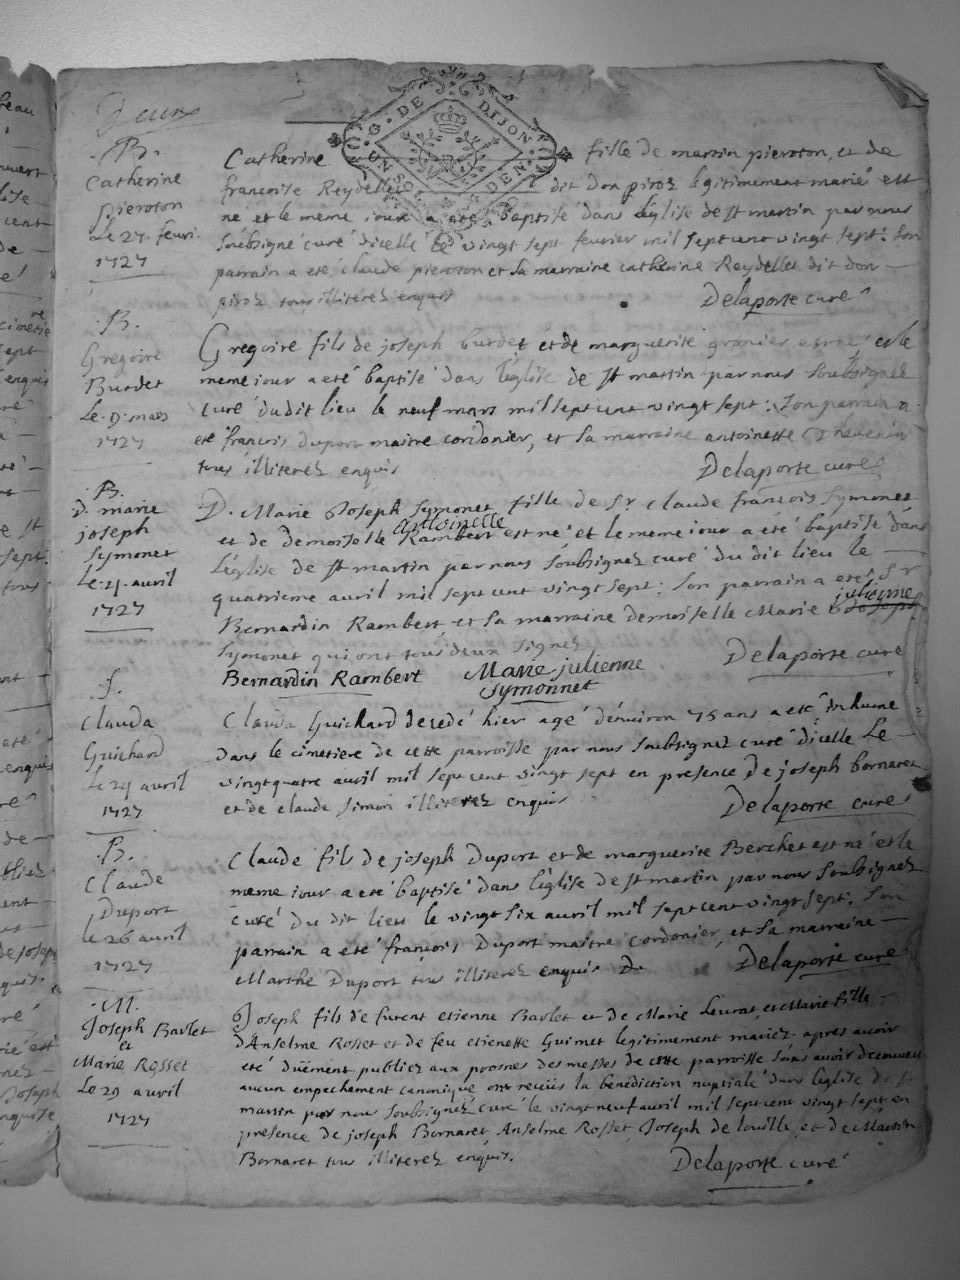 Deux
G. DE DIJON
UN SOL
DEN
.B.
Catherine
pieroton
Le 27 feuri.
1727
Catherine fille de martin pieroton, et de
francoise Reydellet dit don piroz legitimement mariés est
né et le même iour a eté baptisé dans l'eglise de st martin par nous
soubsigné curé dicelle le vingt sept feurier mil sept cent vingt sept: son
parrain a eté claude pieroton et sa marraine catherine Reydellet dit don
piroz tous illiterez enquis
Delaporte curé
.B.
Gregoire
Burdet
Le 9e mars
1727
Gregoire fils de joseph burdet et de marguerite granier est né et le
meme iour a eté baptisé dans l'eglise de st martin par nous soubsigné
curé dudit lieu le neuf mars mil sept cent vingt sept: son parrain a
eté françois duport maitre cordonier, et sa marraine antoinette
tous illiterez enquis
Delaporte curé
.B.
D. marie
joseph
symonet
Le 4 avril
1727
D. Marie Joseph Symonet fille de Sr claude françois symonet
antoinette
et de demoiselle Rambert est né et le meme iour a eté baptisé dans
l'eglise de st martin par nous soubsignez curé du dit lieu le
quatrieme avril mil sept cent vingt sept: son parrain a eté Sr
julienne
Bernardin Rambert et sa marraine demoiselle Marie Joseph
symonet qui ont tous deux signez
Delaporte curé
Bernardin Rambert
Marie julienne
symonnet
.S.
Clauda
Guichard
Le 24 avril
1727
Clauda Guichard decedé hier agé d'enuiron 75 ans a eté inhumé
dans le cimetiere de cette parroisse par nous soubsignez curé dicelle Le
vingt quatre avril mil sept cent vingt sept en presence de joseph bornaret
et de claude simon illiterez enquis
Delaporte curé
.B.
Claude
Duport
le 26 avril
1727
Claude fils de joseph Duport et de marguerite Berchet est né et le
meme iour a eté baptisé dans l'eglise de st martin par nous soubsignez
curé du dit lieu le vingt six avril mil sept cent vingt sept: son
parrain a eté françois Duport maitre cordonier, et sa marraine
Marthe Duport tous illiterez enquis
Delaporte curé
.M.
Joseph Barlet
et
Marie Rosset
Le 29 avril
1727
Joseph fils de furent etienne Barlet et de Marie Leurat et Marie fille
d'Anselme Rosset et de feu etienette Guimet legitimement mariez apres avoir
eté duëment publiez aux prosnes des messes de cette parroisse sans avoir decouuert
aucun empechement canonique ont reçus la benediction nuptiale dans l'eglise de st
martin par nous soubsignez curé le vingt neuf avril mil sept cent vingt sept en
presence de joseph Bornaret, Anselme Rosset Joseph de louille et de Martin
Bornaret tous illiterez enquis.
Delaporte curé